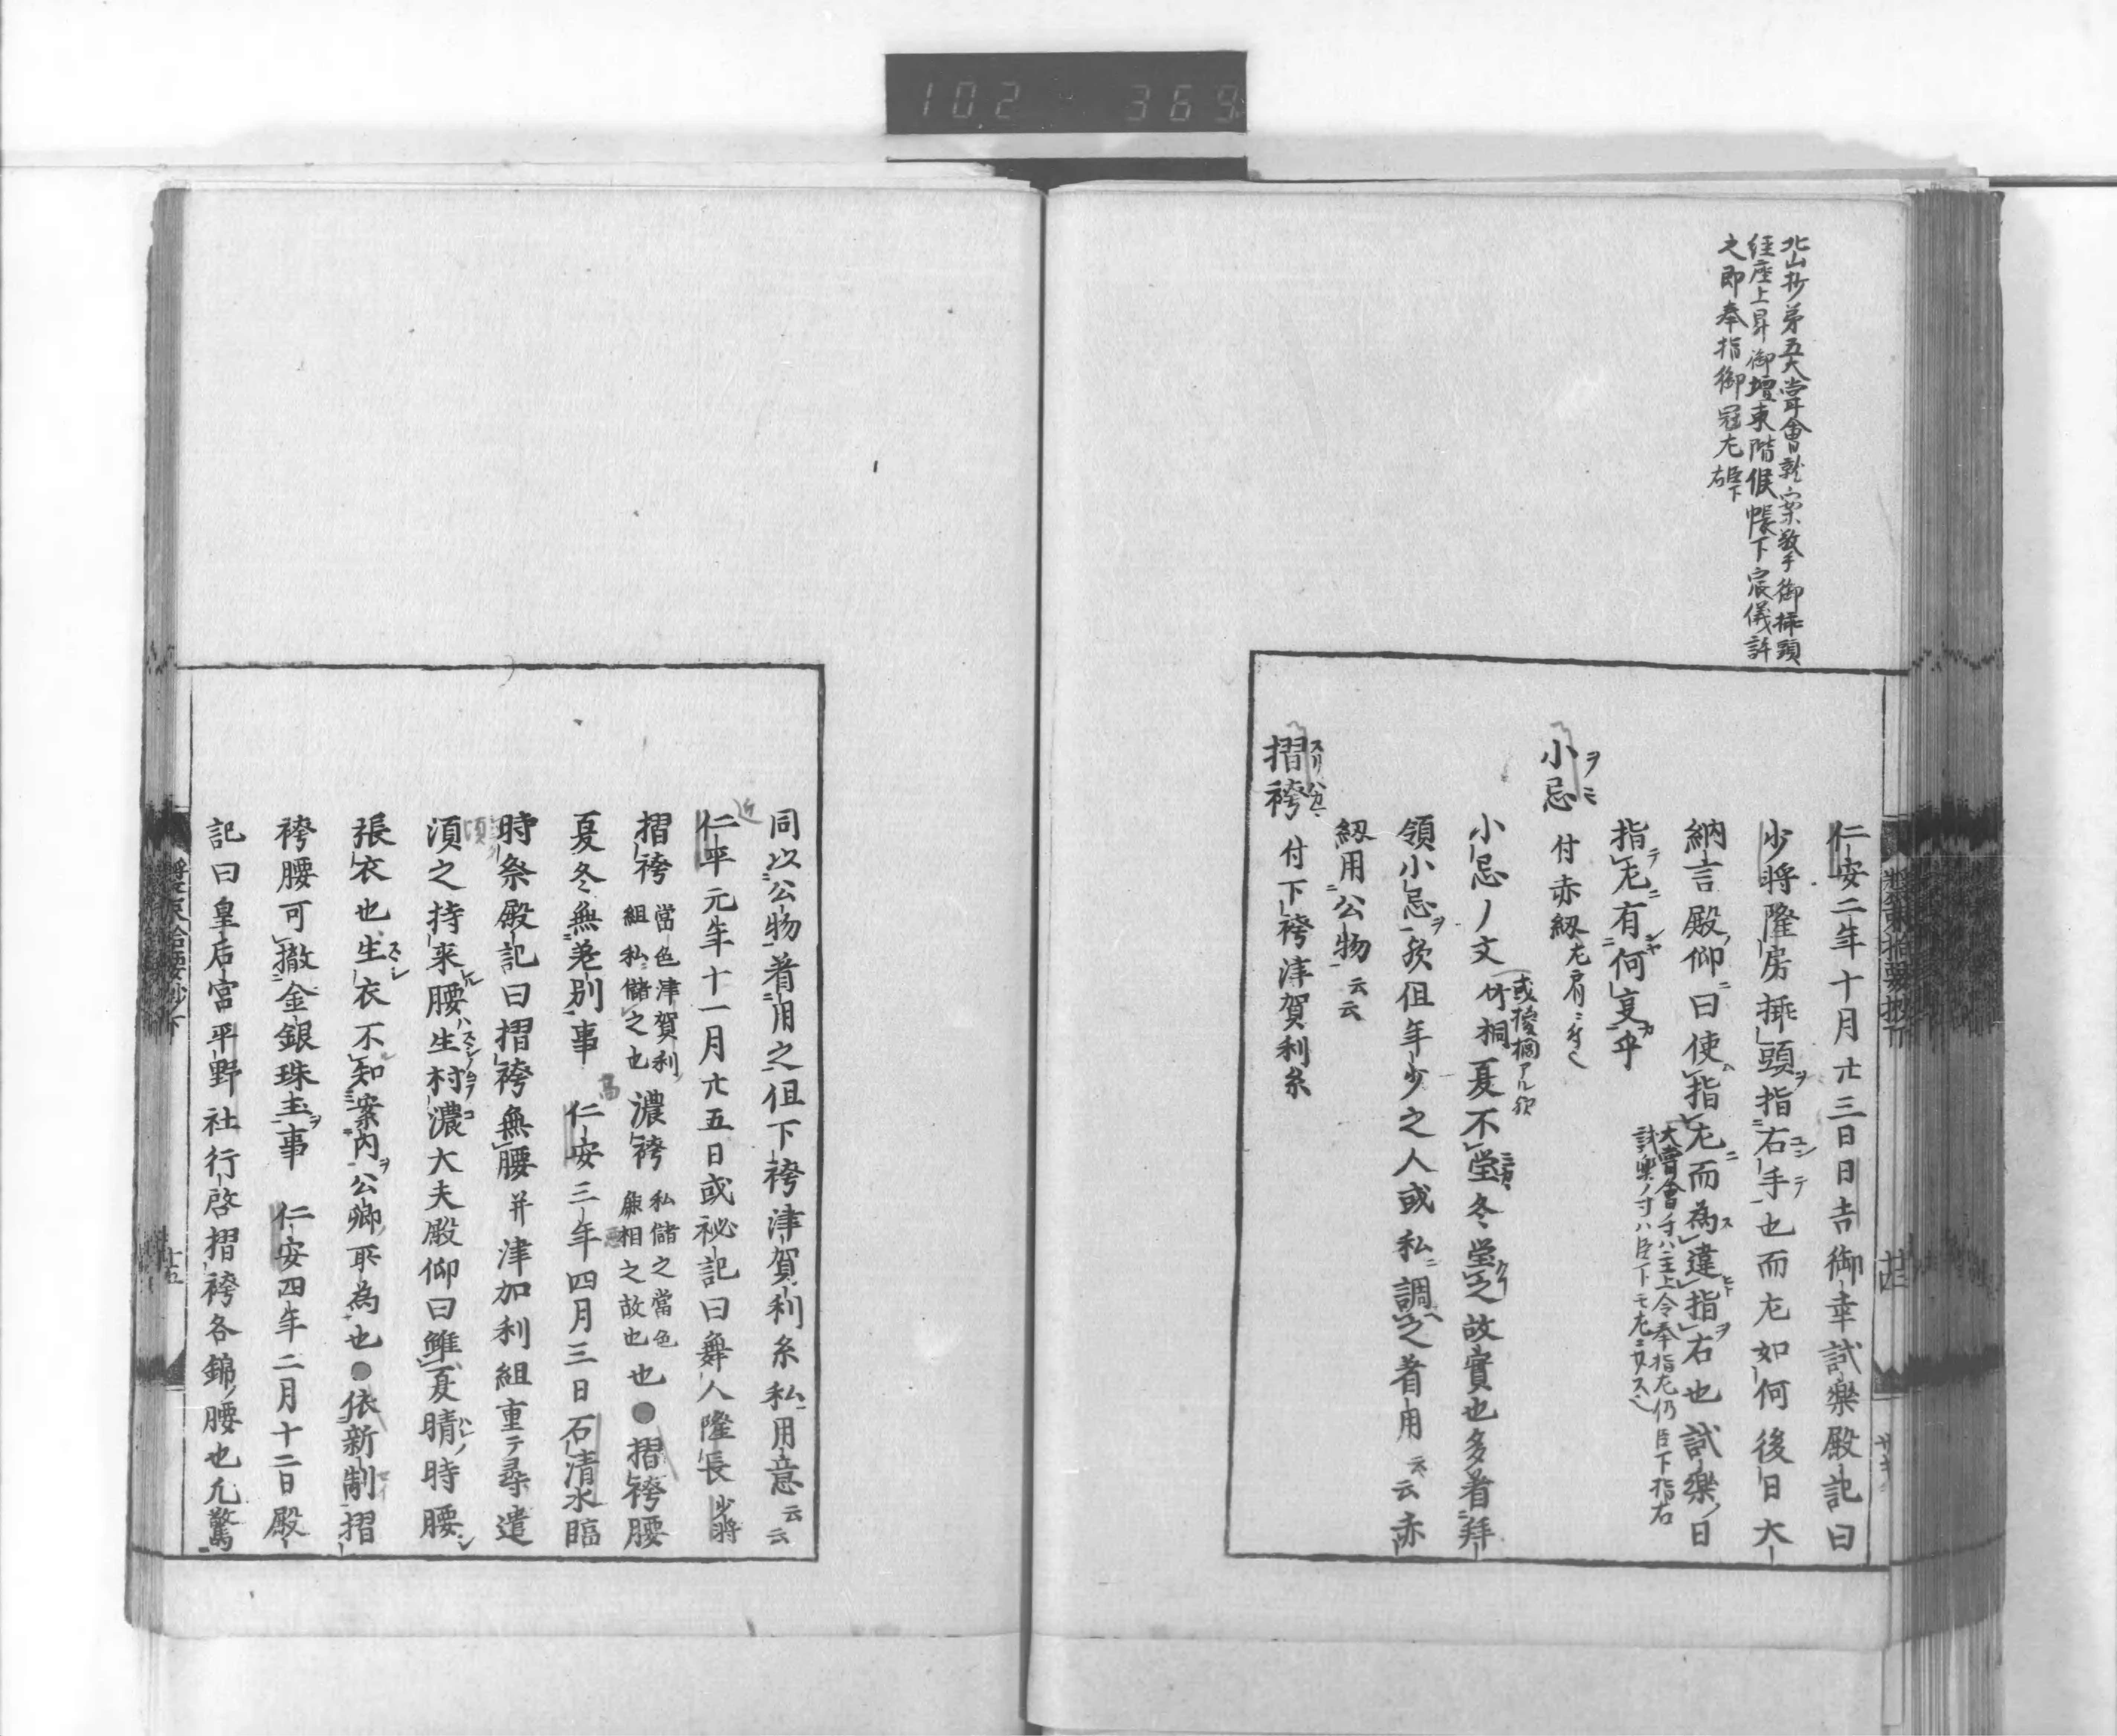 102 369
北山抄第五大嘗會就案敷手御挿頭
経座上昇御壇東階候帳下宸儀許
之即奉指御冠左臣下右
仁安二年十月廿三日日吉御幸試樂殿記曰
少將隆房挿頭指右手也而左如何後日大
納言殿仰曰使指左而為違指右也試樂日
大嘗會時ハ主上令奉指左仍臣下指右
試樂ノ寸ハ臣下モ左ニサス
指左有何事乎
小忌 付赤紐左肩ニ付之
小忌ノ文 竹桐 或後梱アル欤 夏不蛍冬蛍之故實也多着拜
領小忌欤但年少之人或私調之着用云云赤
紐用公物云云
摺袴 付下袴津賀利糸
同以公物着用之但下袴津賀利糸私用意云云
仁平元年十一月廿五日或秘記曰舞人隆長少將
摺袴 當色津賀利組私儲之也 濃袴 私儲之當色麁相之故也 也●摺袴腰
夏冬無差別事 仁安三年四月三日石清水臨
時祭殿記曰摺袴無腰并津加利組重テ尋遣
須之持来腰生村濃大夫殿仰曰雖夏晴時腰
張衣也生衣不知案内公卿所為也●依新制摺
袴腰可撤金銀珠玉事 仁安四年二月十二日殿
記曰皇后宮平野社行啓摺袴各錦腰也尤驚